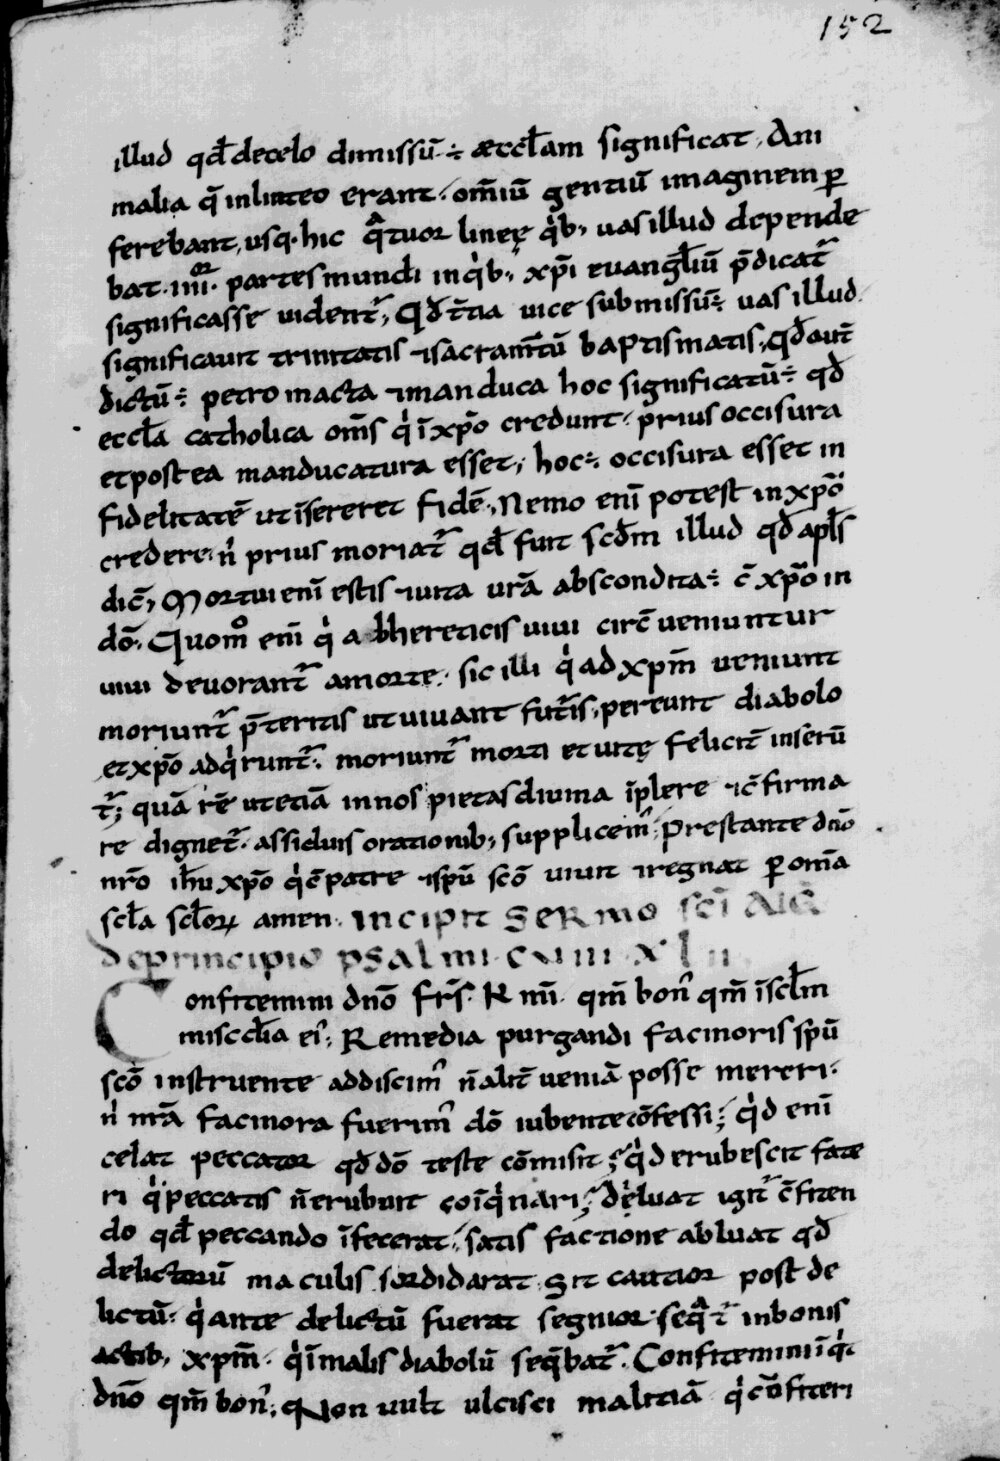 152
illud qd̄ decelo dimissū ÷ æccl̄am significat, Ani
malia q̄ inlinteo erant. om̄iū gentiū imaginem ꝑ
ferebant, usq· hic qͣtuor lineę qͥb; uas illud depende
bat. iiii·ᵒʳ partes mundi inqͥb; xp̄i euangl̄iū p̄dicat᷑
significasse uident᷑; Qd̄ t̄tia uice submissū ÷ uas illud
significauit trinitatis ⁊sacram̄tū baptismatis, qd̄ aut̄
dictū ÷ petro macta ⁊manduca hoc significatū ÷ qd̄
eccl̄a catholica om̄s qͥ ī xp̄o credunt. prius occisura
et postea manducatura esset; hoc ÷ occisura esset in
fidelitatē ut īsereret fidē, Nemo eni̅ potest in xp̄o
credere. n̄ prius moriat᷑ qd̄ fuit scd̄m illud qd̄ apl̄s
dic̄; Mortui eni̅ estis ⁊uita ur̄a abscondita ÷ c̄ xp̄o in
dō. Quomᵒ eni̅ qͥ ab hereticis uiui circ̄ueniuntur
uiui deuorant᷑ amorte. sic illi qͥ ad xp̄m ueniunt
moriunt᷑ p̄teritis ut uiuant fut᷑is, pereunt diabolo
et xp̄o adqͥrunt᷑. moriunt᷑ morti et uitę felicit̄ inserū
t᷑; quā rē ut etiā in nos pietas diuina īplere ⁊c̄firma
re dignet᷑. assiduis orationib; supplicem᷒; Prestante dn̄o
nr̄o ih̄u xp̄o qͥ c̄ patre ⁊sp̄u sc̄o uiuit ⁊regnat ꝑ om̄a
scl̄a scl̄oꝝ amen. incipit sermo sc̄i aug̅
deprincipio psalmi cxiii xlii
Confitemini dn̄o fr̄s. K mi̅. qm̄ bon᷒ qm̄ īscl̄m
miscd̄ia ei᷒; Remedia purgandi facinoris sp̄u
sc̄o instruente addiscim᷒ n̄ alit̄ ueniā posse mereri.
nͥ nr̄a facinora fuerim᷒ dō iubente cōfessi; qͥd eni̅
celat peccator qd̄ dō teste cōmisit; qͥd erubescit fate
ri qͥ peccatis n̄ erubuit coīqͥnari; dęluat igit᷑ c̄fiten
do qd̄ peccando īfecerat, satis factione abluat qd̄
delictorū maculis sordidarat. Sit cautior post de
lictū. qͥ ante delictū fuerat segnior. seqͣt᷑ in bonis
actib; xp̄m. qͥ ī malis diabolū seq̄bat᷑. Confitemini īqͥt
dn̄o qm̄ bon᷒; Non uult ulcisci malitiā qͥ c̄fiteri